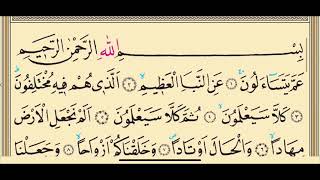 بِسْمِ اللهِ الرَّحْمٰنِ الرَّحِيمِ
عَمَّ يَتَسَاءَلُونَ ۝١ عَنِ النَّبَإِ الْعَظِيمِ ۝٢ الَّذِي هُمْ فِيهِ مُخْتَلِفُونَ
۝٣ كَلَّا سَيَعْلَمُونَ ۝٤ ثُمَّ كَلَّا سَيَعْلَمُونَ ۝٥ أَلَمْ نَجْعَلِ الْأَرْضَ
مِهَادًا ۝٦ وَالْجِبَالَ أَوْتَادًا ۝٧ وَخَلَقْنَاكُمْ أَزْوَاجًا ۝٨ وَجَعَلْنَا